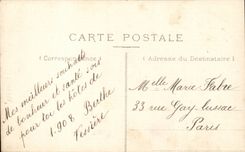 CARTE POSTALE
(Correspondance)
(Adresse du Destinataire)
Mes meilleurs souhaits
de bonheur et santé
pour tous les hôtes de
1.908. Berthe
Mlle Marie Fabre
33 rue Gay-Lussac
Paris